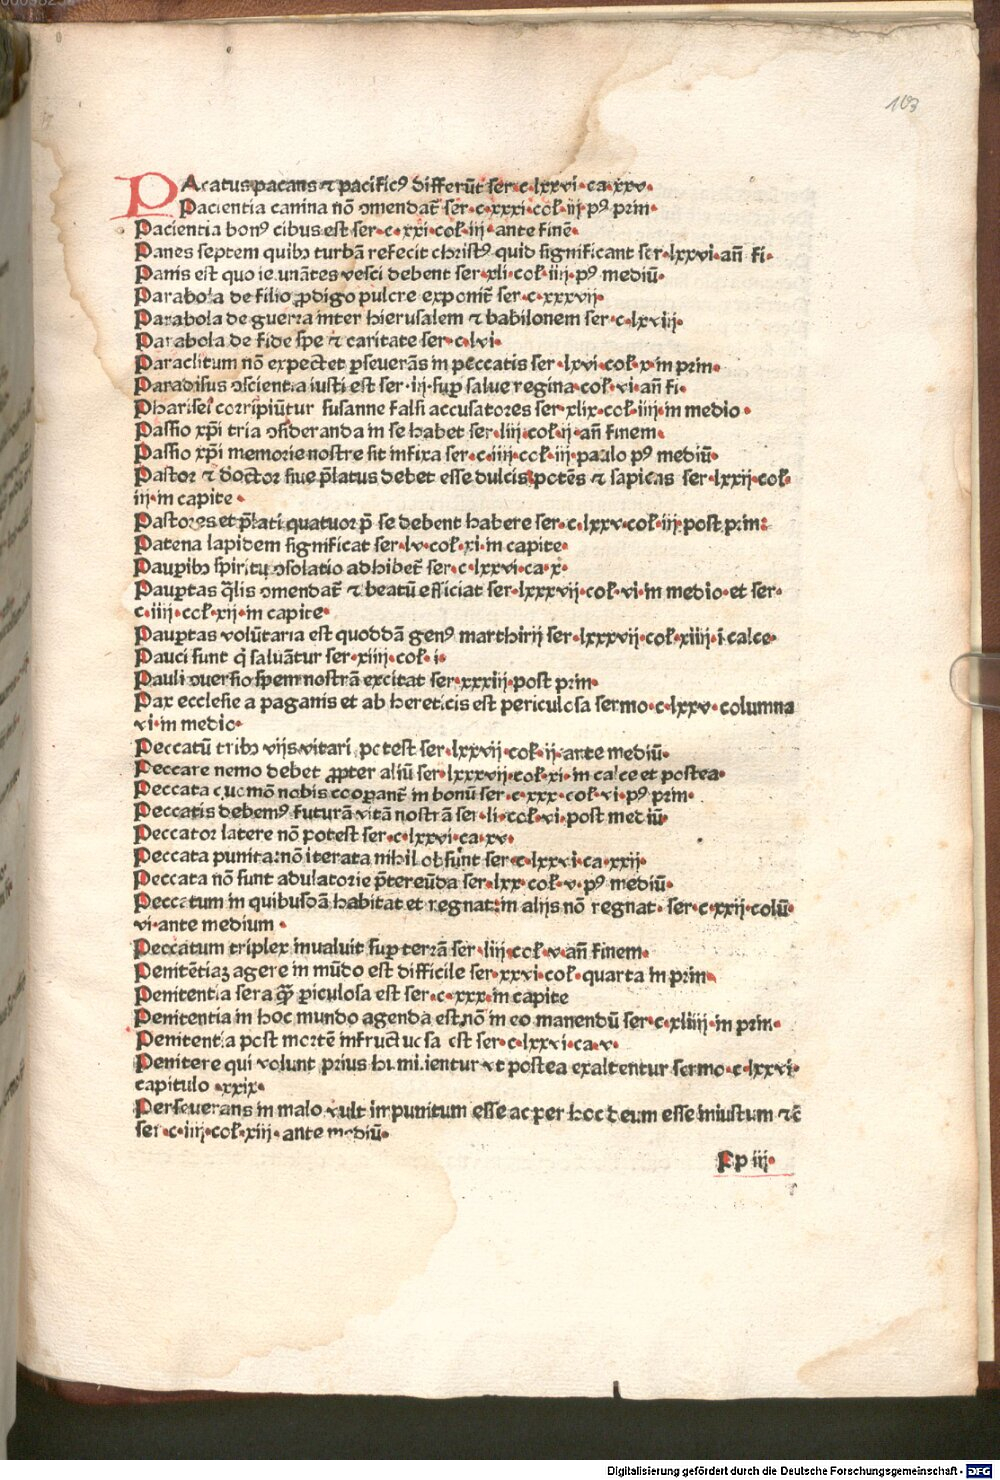 103
PAcatus pacans ⁊ pacificꝰ differūt ser·c·lxxvi·ca·xxv·
Pacientia canina nō ↄmendat̄ ser·c·xxxi·col̄·iij·pꝰ prim·
Pacientia bonꝰ cibus est ser·c·xxi·col̄·iij·ante finē·
Panes septem quibꝫ turbām refecit christꝰ quid significant ser·lxxvi·añ fi·
Panis est quo ieiunātes vesci debent ser·xli·col̄·iiij·pꝰ mediū·
Parabola de filio ꝓdigo pulcre exponit̄ ser·c·xxxvij·
Parabola de guerra inter hierusalem ⁊ babilonem ser·c·lxviij·
Parabola de fide spe ⁊ caritate ser·c·lvi·
Paraclitum nō expectet ꝑseverās in peccatis ser·lxvi·col̄·x·in prin·
Paradisus ↄscientia iusti est ser·iij·suꝑ salve regina·col̄·vi·añ fi·
Pharisei corripiūtur susanne falsi accusatores ser·xlix·col̄·iiij·in medio·
Passio xp̄i tria ↄsideranda in se habet ser·liij·col̄·ij·añ finem·
Passio xp̄i memorie nostre sit infixa ser·c·iiij·col̄·iij·paulo pꝰ mediū·
Pastor ⁊ doctor sive p̄latus debet esse dulcis potēs ⁊ sapiens ser·lxxij·col̄·
iij·in capite·
Pastores et p̄lati quatuor p̄ se debent habere ser·c·lxxv·col̄·iij·post prin:
Patena lapidem significat ser·lv·col̄·xi·in capite·
Pauꝑibꝫ spiritu ↄsolatio adhibet̄ ser·c·lxxvi·ca·x·
Pauꝑtas q̄lis ↄmendat̄ ⁊ beatū efficiat ser·lxxxvij·col̄·vi·in medio·et ser·
c·iiij·col̄·xij·in capite·
Pauꝑtas volūtaria est quoddā genꝰ marthirij ser·lxxxvij·col̄·xiiij·ī calce·
Pauci sunt q̄ salvātur ser·xiiij·col̄·i·
Pauli ↄversio spem nostrā excitat ser·xxxiij·post prin·
Pax ecclesie a paganis et ab hereticis est periculosa sermo·c·lxxv·columna
vi·in medio·
Peccatū tribꝫ vijs vitari potest ser·lxxvij·col̄·ij·ante mediū·
Peccare nemo debet ꝓpter aliū ser·lxxxvij·col̄·xi·in calce et postea·
Peccata quomō nobis cooꝑant̄ in bonū ser·c·xxx·col̄·vi·pꝰ prin·
Peccatis debemꝰ futurā vitā nostrā ser·li·col̄·vi·post mediū·
Peccator latere nō potest ser·c·lxxvi·ca·xv·
Peccata punita: nō iterata nihil obsunt ser·c·lxxvi·ca·xxij·
Peccata nō sunt adulatorie p̄tereūda ser·lxx·col̄·v·pꝰ mediū·
Peccatum in quibusdā habitat et regnat: in alijs nō regnat· ser·c·xxij·colū·
vi·ante medium·
Peccatum triplex invaluit suꝑ terrā ser·liij·col̄·v·añ finem·
Penitētiaꝫ agere in mūdo est difficile ser·xxvi·col̄·quarta in prin·
Penitentia sera qƺ̄ ꝑiculosa est ser·c·xxx·in capite
Penitentia in hoc mundo agenda est nō in eo manendū ser·c·xliiij·in prin·
Penitentia post mortē infructuosa est ser·c·lxxvi·ca·v·
Penitere qui volunt prius humilientur vt postea exaltentur sermo·c·lxxvi·
capitulo·xxix·
Perseverans in malo vult impunitum esse ac per hoc deum esse iniustum ⁊c̄
ser·c·iiij·col̄·xiij·ante mediū·
Pp iij·
Digitalisierung gefördert durch die Deutsche Forschungsgemeinschaft - DFG